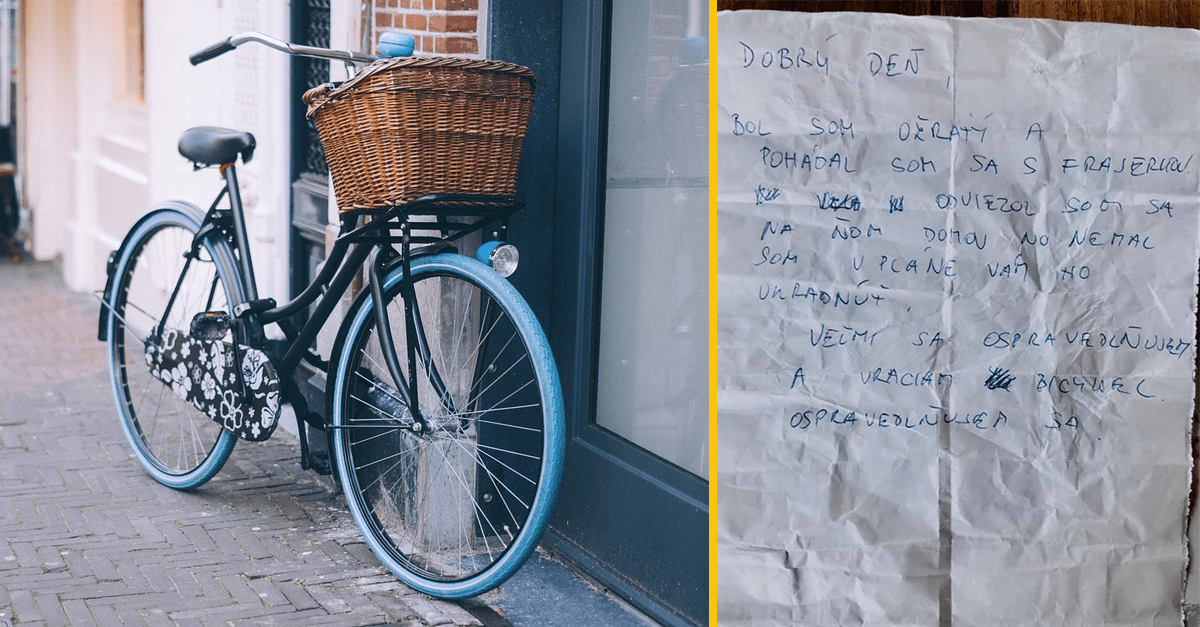 DOBRÝ DEŇ,
BOL SOM OŽRATÝ A
POHÁDAL SOM SA S FRAJERKOU.
ODVIEZOL SOM SA
NA ŇOM DOMOV NO NEMAL
SOM V PLÁNE VÁM HO
UKRADNÚŤ.
VEĽMI SA OSPRAVEDLŇUJEM
A VRACIAM BICYKEL.
OSPRAVEDLŇUJEM SA.